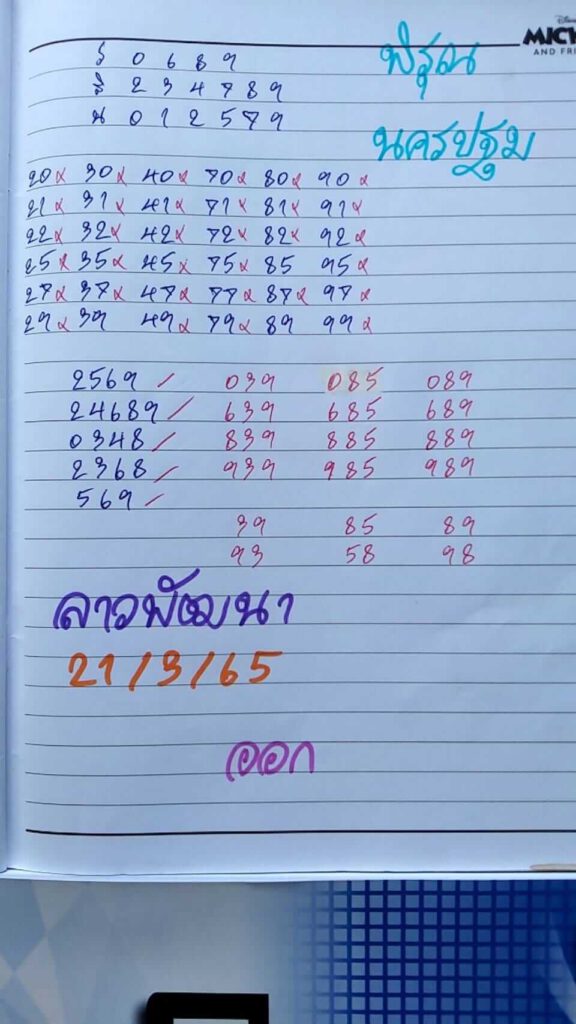 Disney
MICK
AND FRI
พิรุณ
นครปฐม
ร 0 6 8 9
สิ 2 3 4 7 8 9
น 0 1 2 5 7 9
20x 30x 40x 70x 80x 90x
21x 31x 41x 71x 81x 91x
22x 32x 42x 72x 82x 92x
25x 35x 45x 75x 85 95x
27x 37x 47x 77x 87x 97x
29x 39 49x 79x 89 99x
2569 / 039 085 089
24689 / 639 685 689
0348 / 839 885 889
2368 / 939 985 989
569 /
39 85 89
93 58 98
ลาวพัฒนา
21/3/65
ออก